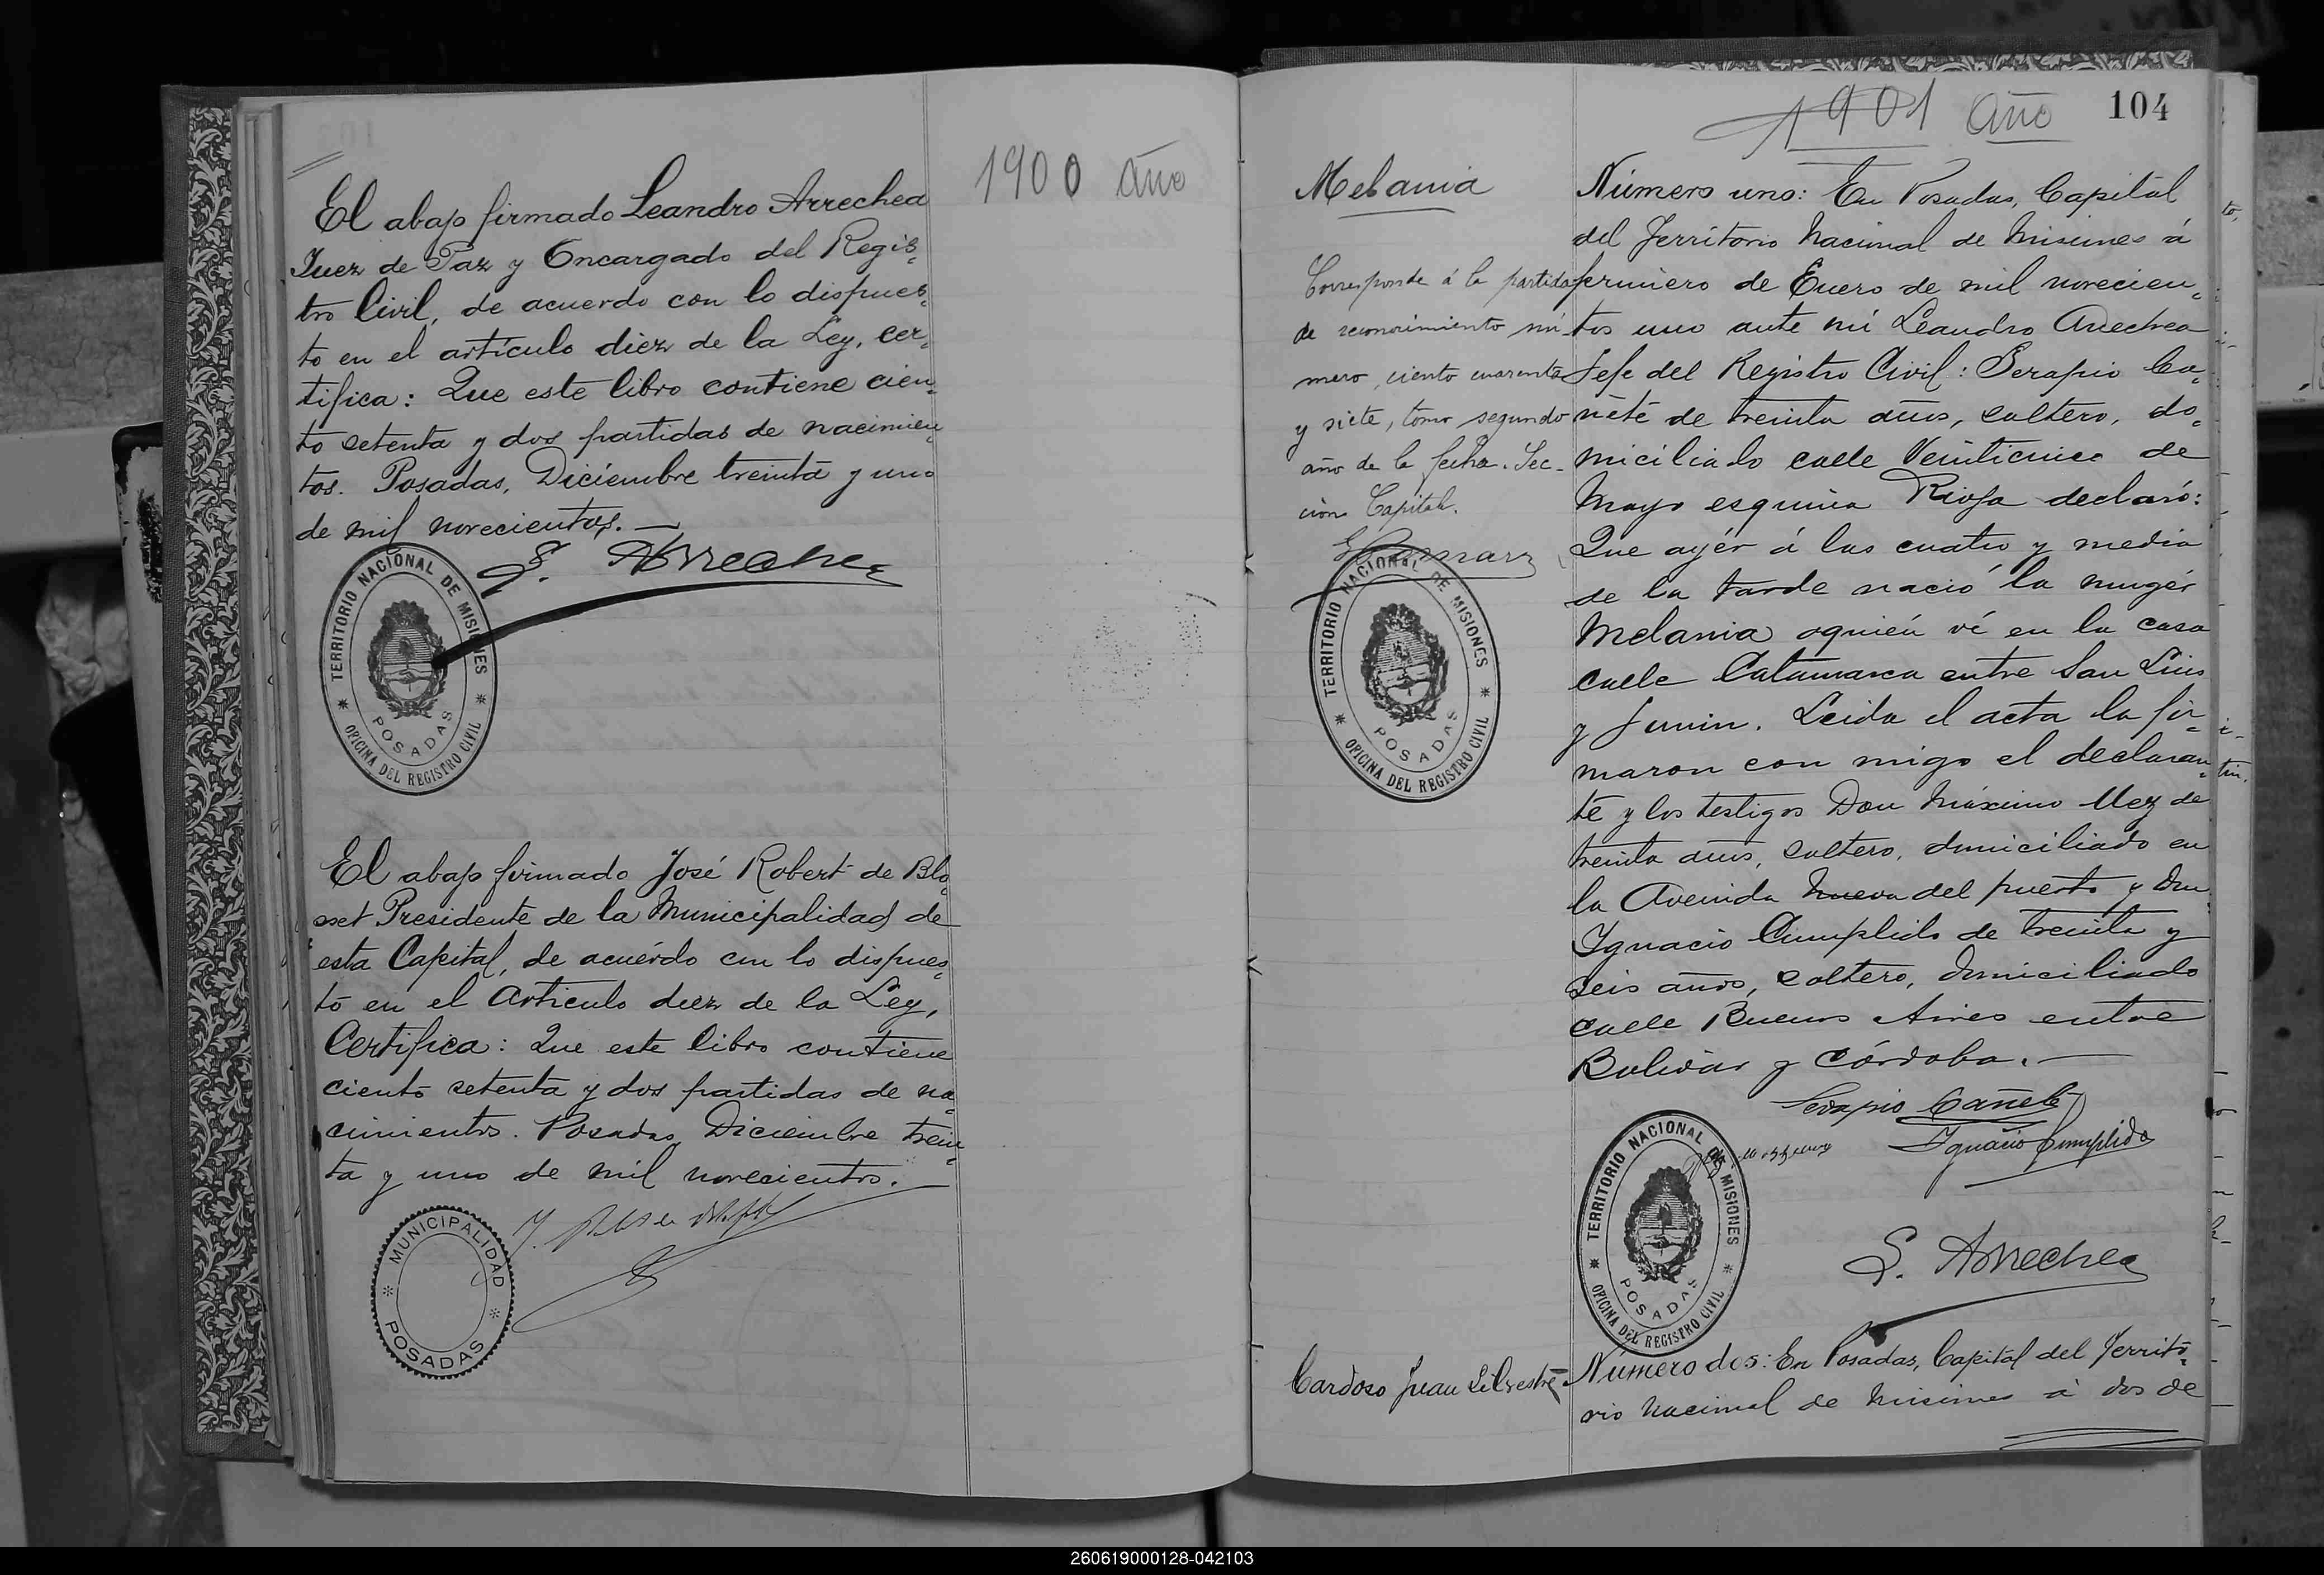 1900 Año
El abajo firmado Leandro Arrechea
Juez de Paz y Encargado del Regis-
tro Civil, de acuerdo con lo dispues-
to en el artículo diez de la Ley, cer-
tifica: Que este libro contiene cien-
to setenta y dos partidas de nacimien-
tos. Posadas, Diciembre treinta y uno
de mil novecientos.—
L. Arrechea
TERRITORIO NACIONAL DE MISIONES
POSADAS
OFICINA DEL REGISTRO CIVIL
El abajo firmado José Robert de Blo-
sset Presidente de la Municipalidad de
esta Capital, de acuérdo con lo dispues-
to en el Artículo diez de la Ley,
Certifica: Que este libro contiene
ciento setenta y dos partidas de na-
cimientos. Posadas, Diciembre trein-
ta y uno de mil novecientos.
MUNICIPALIDAD
POSADAS
1901 Año
104
Melania
Corresponde á la partida
de reconocimiento nú-
mero, ciento cuarenta
y siete, tomo segundo
año de la fecha. Sec-
cion Capital.
TERRITORIO NACIONAL DE MISIONES
POSADAS
OFICINA DEL REGISTRO CIVIL
Número uno: En Posadas, Capital
del Territorio Nacional de Misiones á
primero de Enero de mil novecien-
tos uno ante mí Leandro Arrechea
Jefe del Registro Civil: Serapio Ca-
ñete de treinta años, soltero, do-
miciliado calle Veinticinco de
Mayo esquina Rioja declaró:
Que ayér á las cuatro y media
de la tarde nació la mugér
Melania aquién ví en la casa
calle Catamarca entre San Luis
y Junin. Leida el acta la fir-
maron con migo el declaran-
te y los testigos Don Máximo Uez de
treinta años, soltero, domiciliado en
la Avenida Nueva del puerto y Don
Ignacio Cumplido de treinta y
seis años, soltero, domiciliado
calle Buenos Aires entre
Bolívar y Córdoba.—
Serapio Cañete
Ignacio Cumplido
L. Arrechea
TERRITORIO NACIONAL DE MISIONES
POSADAS
OFICINA DEL REGISTRO CIVIL
Cardoso Juan Silvestre
Número dos: En Posadas, Capital del Territo-
rio Nacional de Misiones á dos de
260619000128-042103